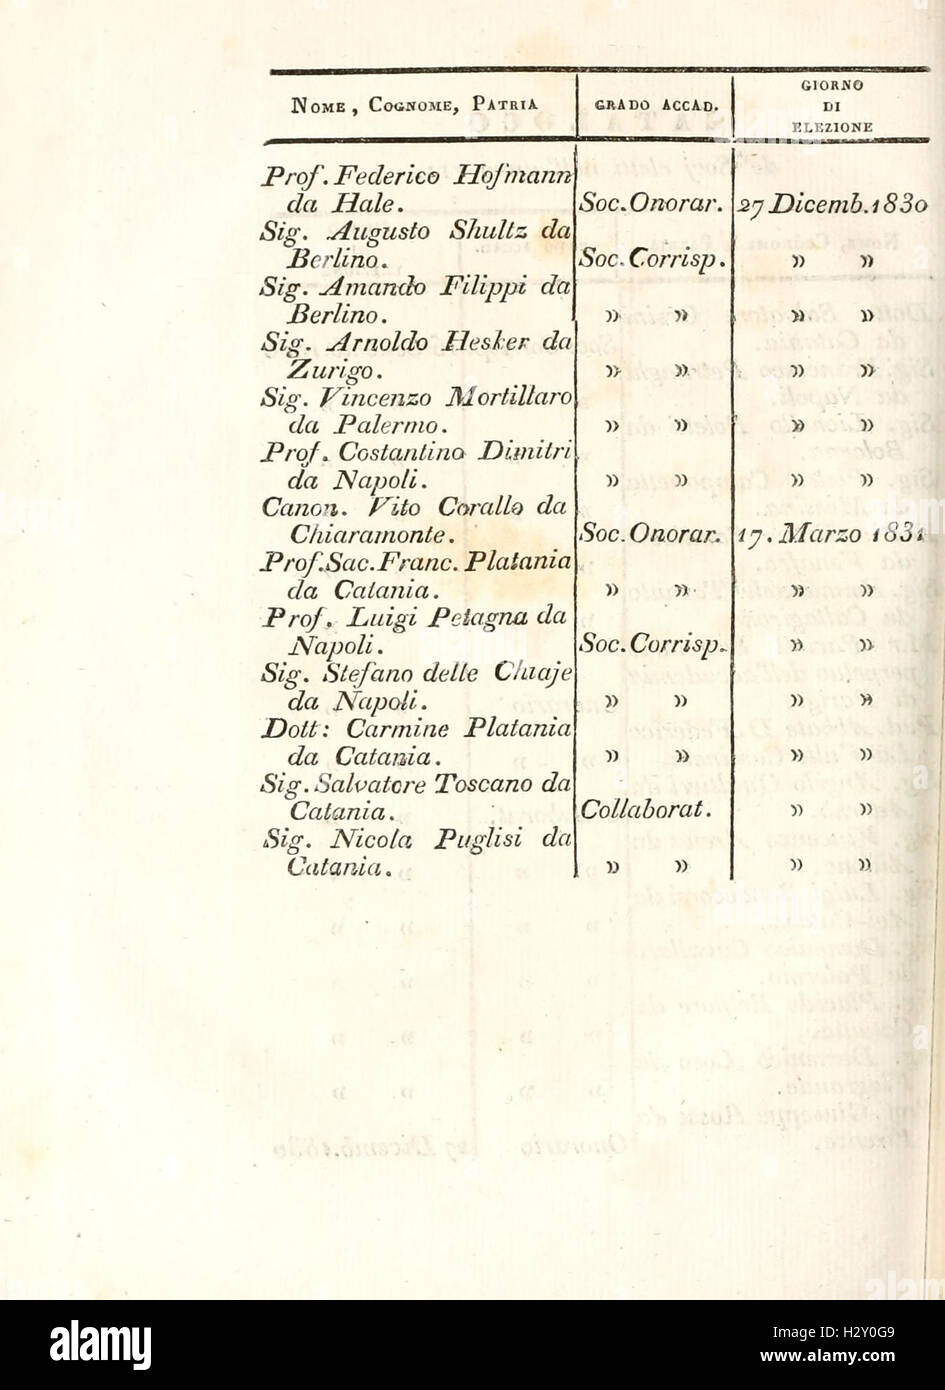 NOME, COGNOME, PATRIA GRADO ACCAD. GIORNO DI ELEZIONE
Prof. Federico Hofmann
da Hale. Soc. Onorar. 27 Dicemb. 1830
Sig. Augusto Shultz da
Berlino. Soc. Corrisp. » »
Sig. Amando Filippi da
Berlino. » » » »
Sig. Arnoldo Hesker da
Zurigo. » » » »
Sig. Vincenzo Mortillaro
da Palermo. » » » »
Prof. Costantino Dimitri
da Napoli. » » » »
Canon. Vito Corallo da
Chiaramonte. Soc. Onorar. 17. Marzo 1831
Prof. Sac. Franc. Platania
da Catania. » » » »
Prof. Luigi Petagna da
Napoli. Soc. Corrisp. » »
Sig. Stefano delle Chiaje
da Napoli. » » » »
Dott: Carmine Platania
da Catania. » » » »
Sig. Salvatore Toscano da
Catania. Collaborat. » »
Sig. Nicola Puglisi da
Catania. » » » »
alamy
Image ID: H2Y0G9
www.alamy.com